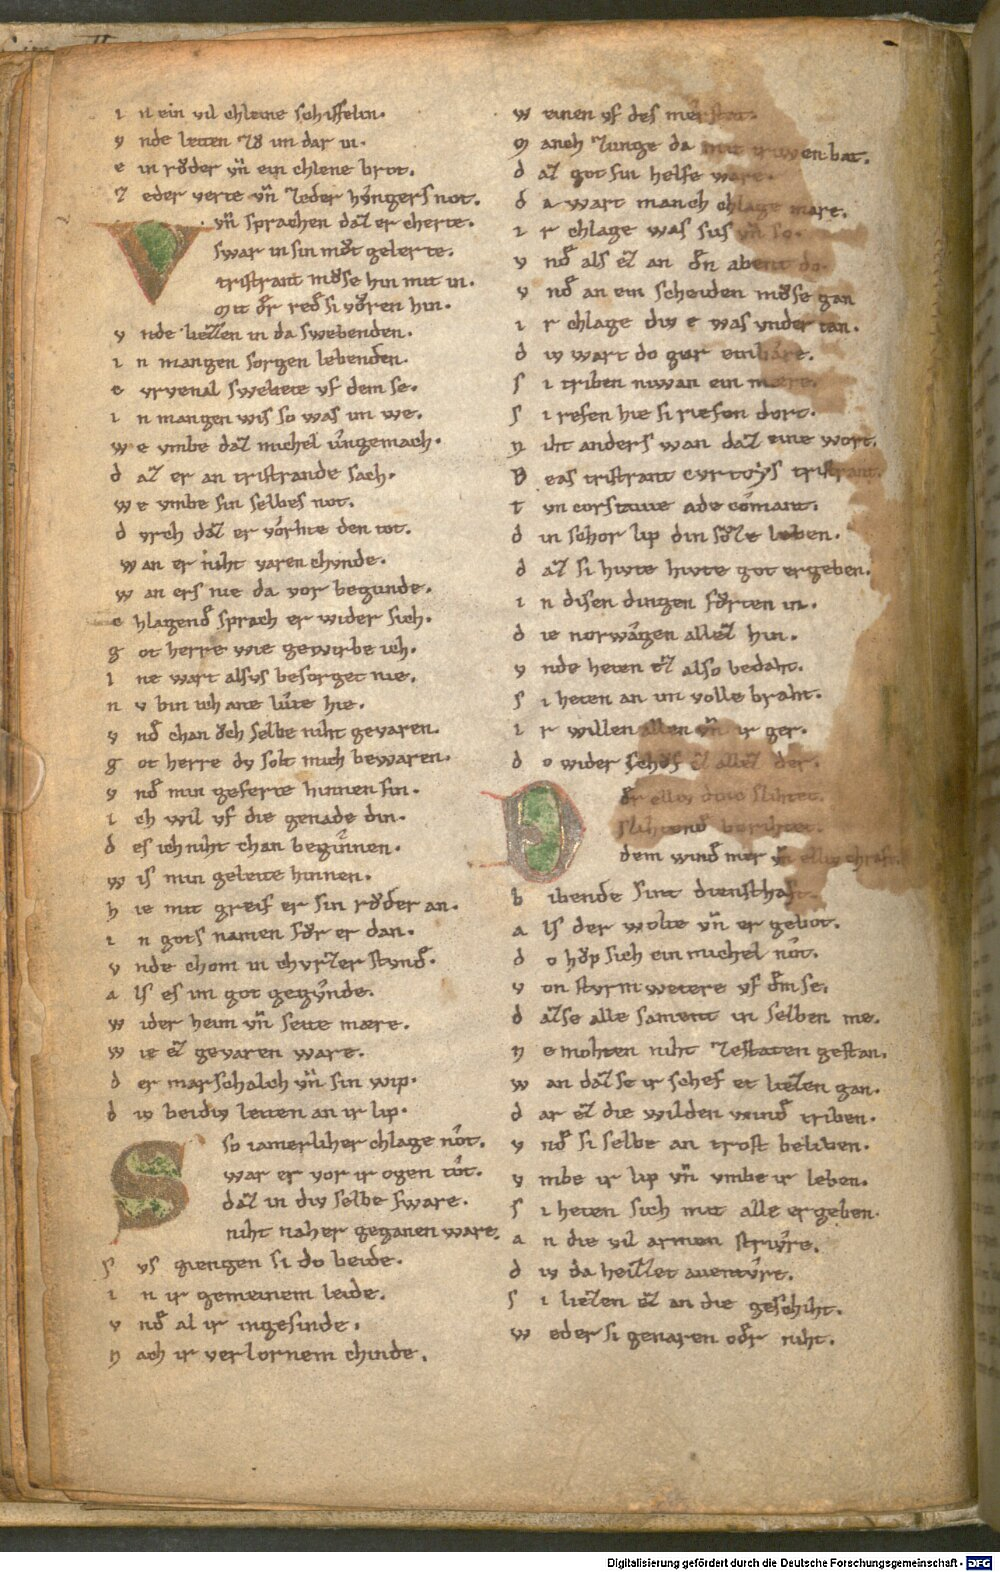 i n ein vil chleine schiffelin.
v nde leiten zů im dar in.
e in růder vñ ein chlene brot.
z eder verte vñ zeder hvngers not.
V vñ sprachen daz er cherte.
swar in sin můt gelerte.
tristrant můse hin mit in.
mit dͤr redͤ si vůren hin.
v nde liezzen in da swebenden.
i n mangen sorgen lebenden.
c vrvenal swebete vf dem se.
i n mangen wis so was im we.
w e vmbe daz michel vngemach.
d az er an tristrande sach.
w e vmbe sin selbes not.
d vrch daz er vorhte den tot.
w an er niht varen chvnde.
w an ers nie da vor begunde.
c hlagendͤ sprach er wider sich.
g ot herre wie gewirbe ich.
i ne wart alsvs besorget nie.
n v bin ich ane lvte hie.
v ndͤ chan ůch selbe niht gevaren.
g ot herre dv solt mich bewaren.
v ndͤ min geferte hinnen sin.
i ch wil vf die genade din.
d es ich niht chan beginnen.
w is min geleite hinnen.
h ie mit greif er sin růder an.
i n gots namen fůr er dan.
v nde chom in chvrzer stvndͤ.
a ls es im got gegvnde.
w ider heim vñ seite mære.
w ie ez gevaren ware.
d er marschalch vñ sin wip.
d iv beidiv leiten an ir lip.
S so iamerlicher chlage not.
war er vor ir ogen tot.
daz in div selbe sware.
niht naher geganen ware.
s vs giengen si do beide.
i n ir gemeinem leide.
v ndͤ al ir ingesinde.
n ach ir verlornem chinde.
w einen vf des mers stat.
m anch zunge da mit triwen bat.
d az got sin helfe ware.
d a wart manch chlage mare.
i r chlage was sus vñ so.
v ndͤ als ez an dͤn abent do.
v ndͤ an ein scheiden můse gan
i r chlage div e was vnder tan.
d iv wart do gar einbære.
s i triben niwan ein mære.
s i refen hie si riefen dort.
n iht anders wan daz eine wort.
B eas tristrant cvrtoys tristrant.
t vn cors ta vie a de comant.
d in schor lip din sůze leben.
d az si hivte hivte got ergeben.
i n disen dingen fůrten in.
d ie norwægen allez hin.
v nde heten ez also bedaht.
s i heten an im volle braht.
i r willen allen vñ ir ger.
d o wider schůf ez allez der.
D dͤr elliv dinc slihtet.
slihtendͤ berihtet.
dem windͤ mer vñ elliv chraft
b ibende sint diensthaft.
a ls der wolte vñ er gebot.
d o hůp sich ein michel not.
v on stvrmwetere vf dͤm se.
d az se alle sament in selben me.
n e mohten niht ze staten gestan.
w an daz se ir schef et liezen gan.
d ar ez die wilden windͤ triben.
v ndͤ si selbe an trost beliben.
v mbe ir lip vñ vmbe ir leben.
s i heten sich mit alle ergeben.
a n die vil armen stivre.
d iv da heizzet aventvre.
s i liezen ez an die geschiht.
w eder si genaren odͤr niht.
Digitalisierung gefördert durch die Deutsche Forschungsgemeinschaft - DFG